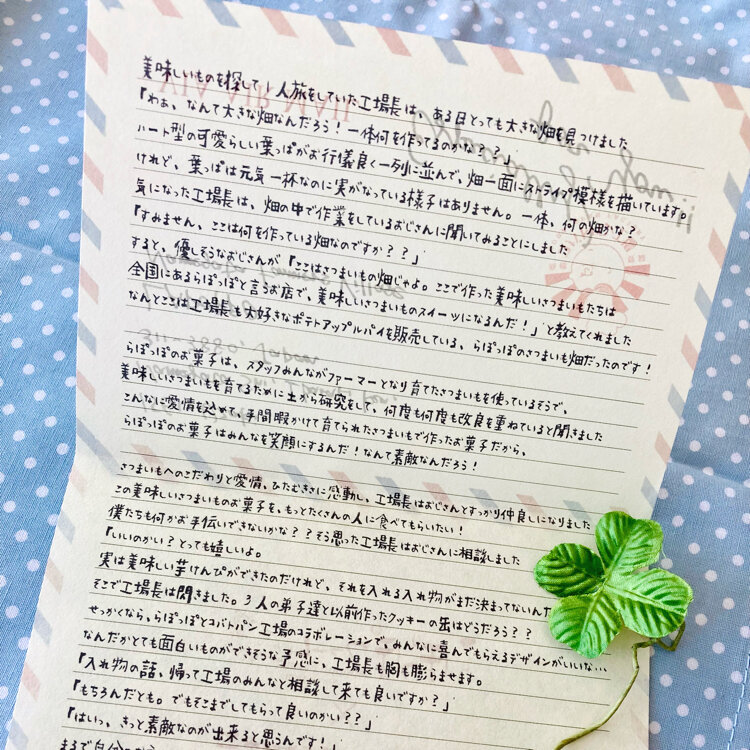 美味しいものを探して1人旅をしていた工場長は、ある日とっても大きな畑を見つけました
『わぁ、なんて大きな畑なんだろう！一体何を作ってるのかな？？』
ハート型の可愛らしい葉っぱがお行儀良く一列に並んで、畑一面にストライプ模様を描いています。
けれど、葉っぱは元気一杯なのに実がなっている様子はありません。一体、何の畑かな？
気になった工場長は、畑の中で作業をしているおじさんに聞いてみることにしました
『すみません、ここは何を作っている畑なのですか？？』
すると、優しそうなおじさんが『ここはさつまいもの畑じゃよ。ここで作った美味しいさつまいもたちは
全国にあるらぽっぽと言うお店で、美味しいさつまいものスイーツになるんだ！』と教えてくれました
なんとここは工場長も大好きなポテトアップルパイを販売している、らぽっぽのさつまいも畑だったのです！
らぽっぽのお菓子は、スタッフみんながファーマーとなり育てたさつまいもを使っているそうで、
美味しいさつまいもを育てるために土から研究をして、何度も何度も改良を重ねていると聞きました
こんなに愛情を込めて、手間暇かけて育てられたさつまいもで作ったお菓子だから、
らぽっぽのお菓子はみんなを笑顔にするんだ！なんて素敵なんだろう！
さつまいもへのこだわりと愛情、ひたむきさに感動し、工場長はおじさんとすっかり仲良しになりました
この美味しいさつまいものお菓子を、もっとたくさんの人に食べてもらいたい！
僕たちも何かお手伝いできないかな？？そう思った工場長はおじさんに相談しました
『いいのかい？とっても嬉しいよ。
実は美味しい芋けんぴができたのだけれど、それを入れる入れ物がまだ決まってないんだ
そこで工場長は閃きました。3人の弟子達と以前作ったクッキーの缶はどうだろう？？
せっかくなら、らぽっぽとコバトパン工場のコラボレーションで、みんなに喜んでもらえるデザインがいいな...
なんだかとても面白いものができそうな予感に、工場長も胸も膨らませます。
『入れ物の話、帰って工場のみんなと相談して来ても良いですか？』
『もちろんだとも。でもそこまでしてもらって良いのかい？？』
『はいっ、きっと素敵なのが出来ると思うんです！』